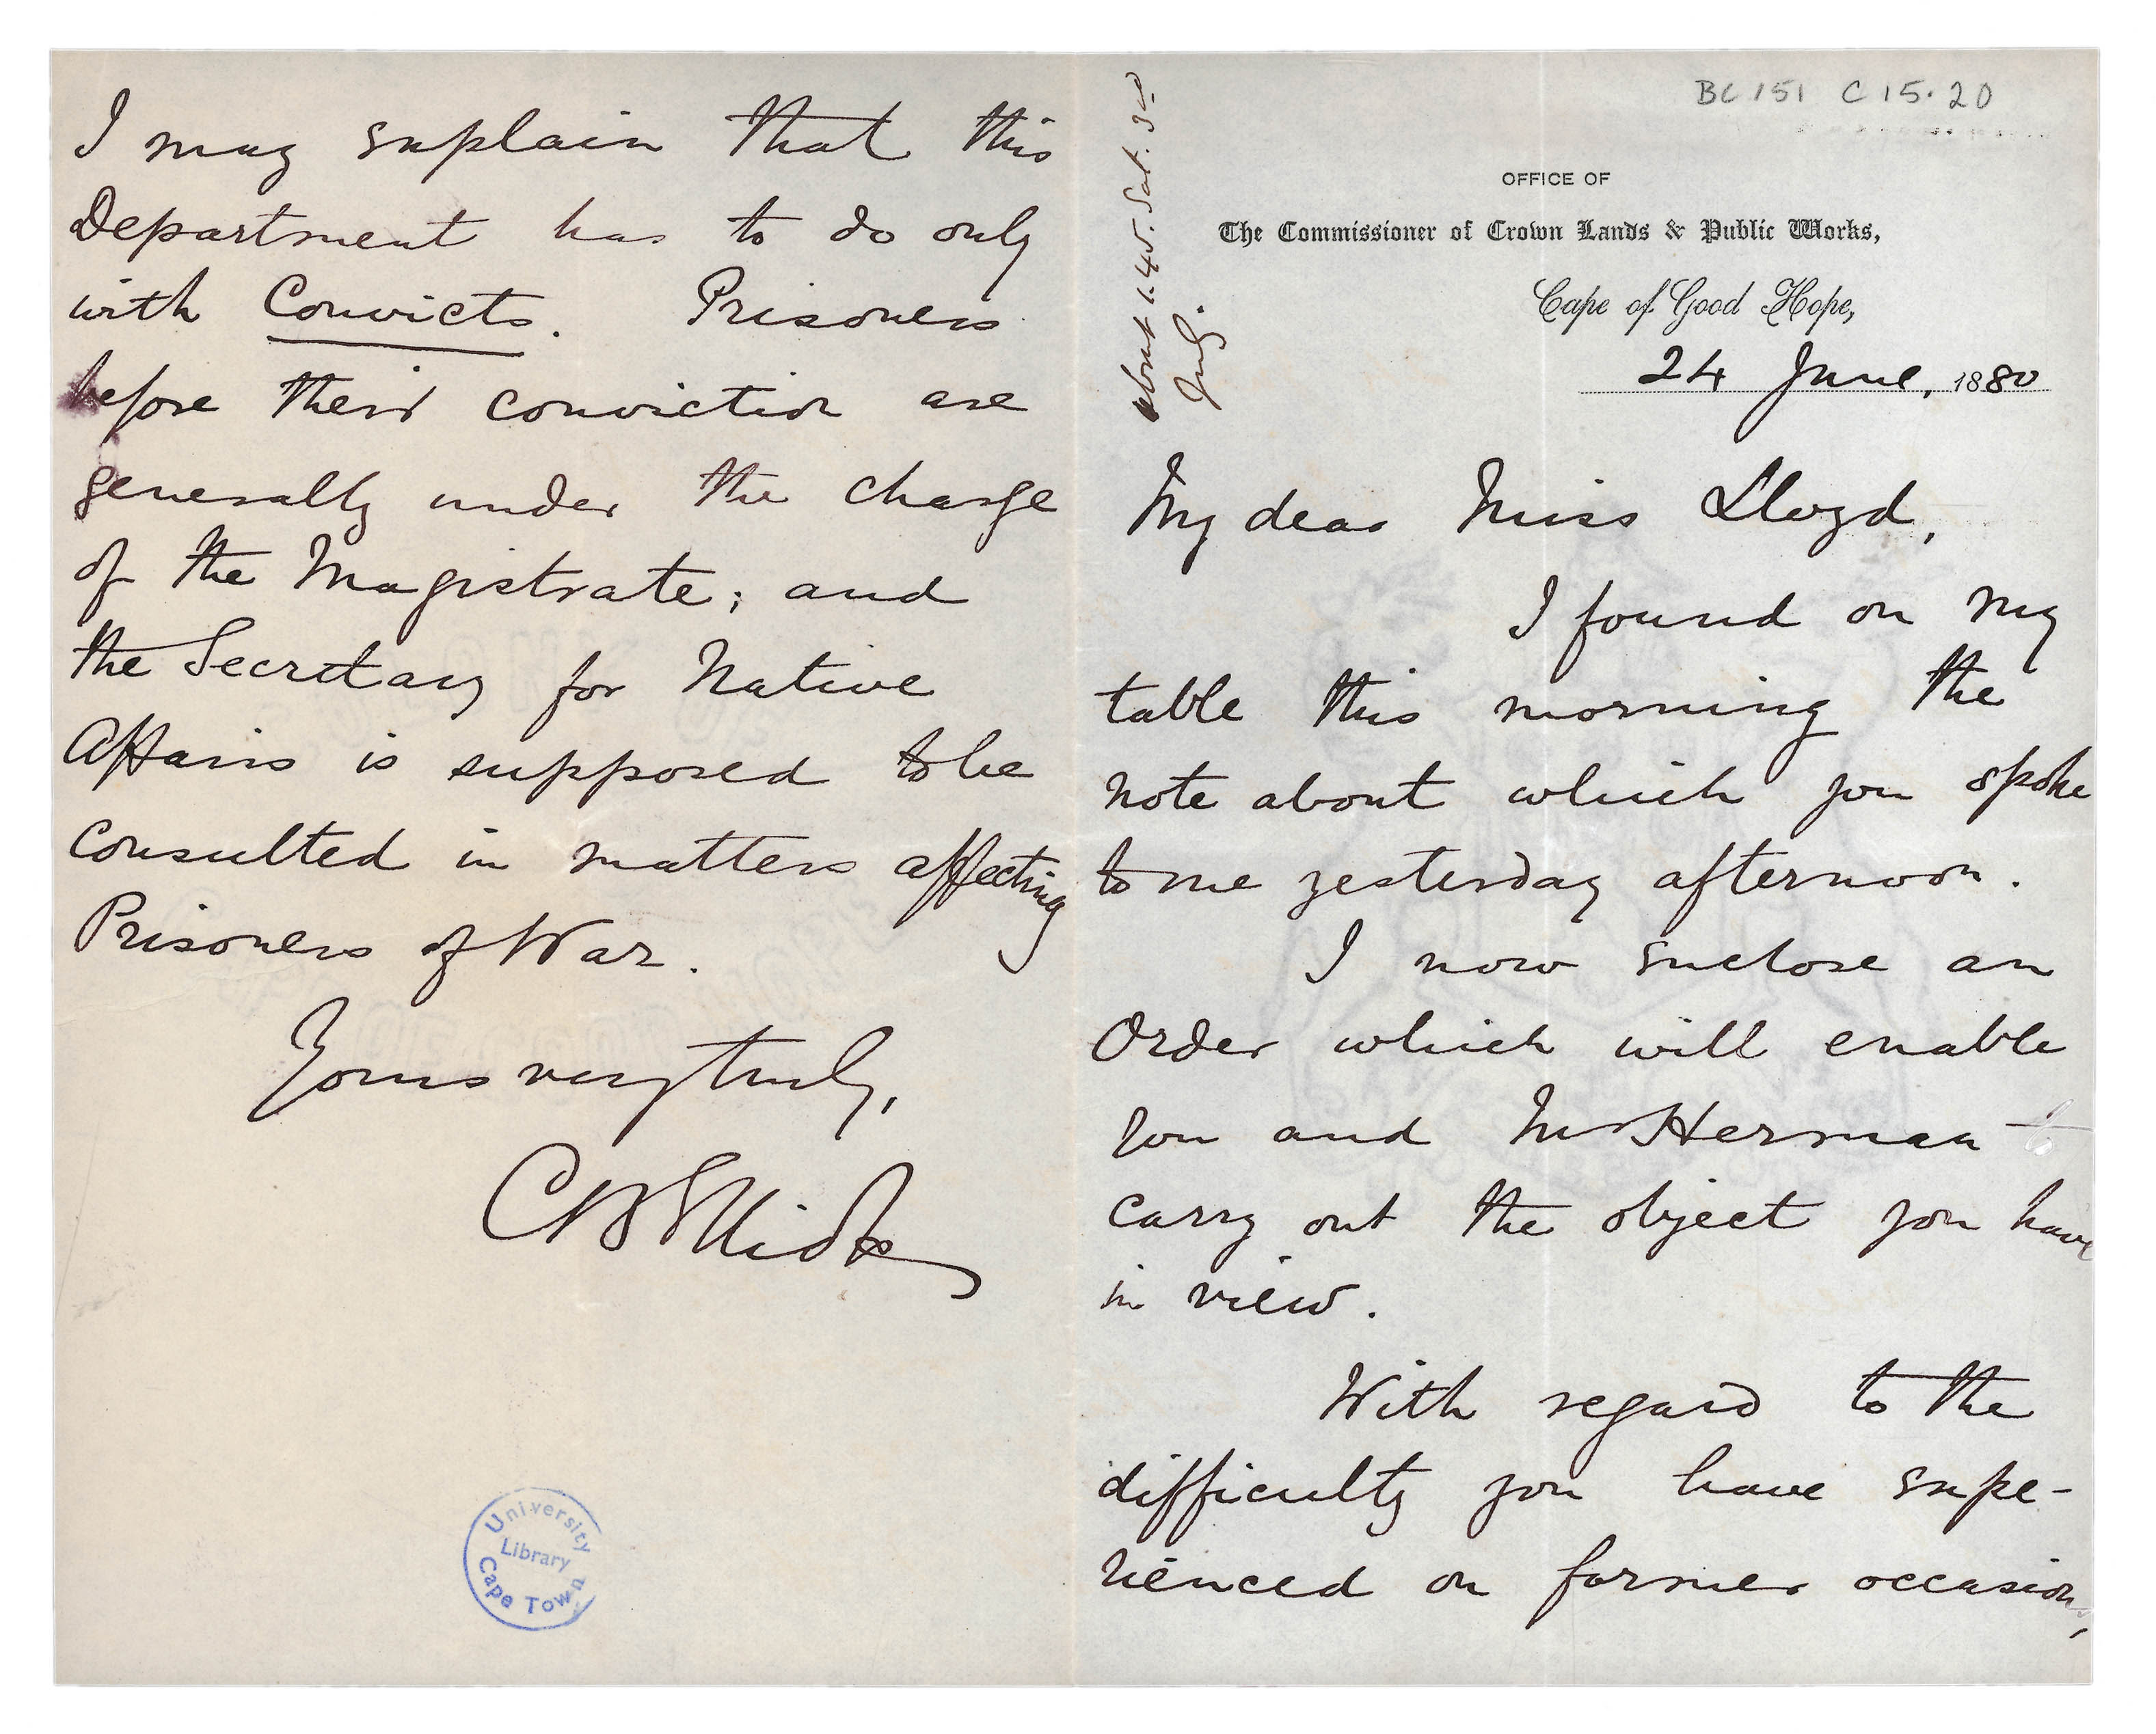 BC 151 C 15.20
OFFICE OF
The Commissioner of Crown Lands & Public Works,
Cape of Good Hope,
24 June, 1880
about 1.45. Sat. 3rd
July.
My dear Miss Lloyd,
I found on my
table this morning the
note about which you spoke
to me yesterday afternoon.
I now enclose an
Order which will enable
you and Mr Herman to
carry out the object you have
in view.
With regard to the
difficulty you have expe-
rienced on former occasion,
I may explain that this
Department has to do only
with Convicts. Prisoners
before their conviction are
generally under the charge
of the Magistrate; and
the Secretary for Native
Affairs is supposed to be
consulted in matters affecting
Prisoners of War.
Yours very truly,
C B Elliott
University
Library
Cape Town